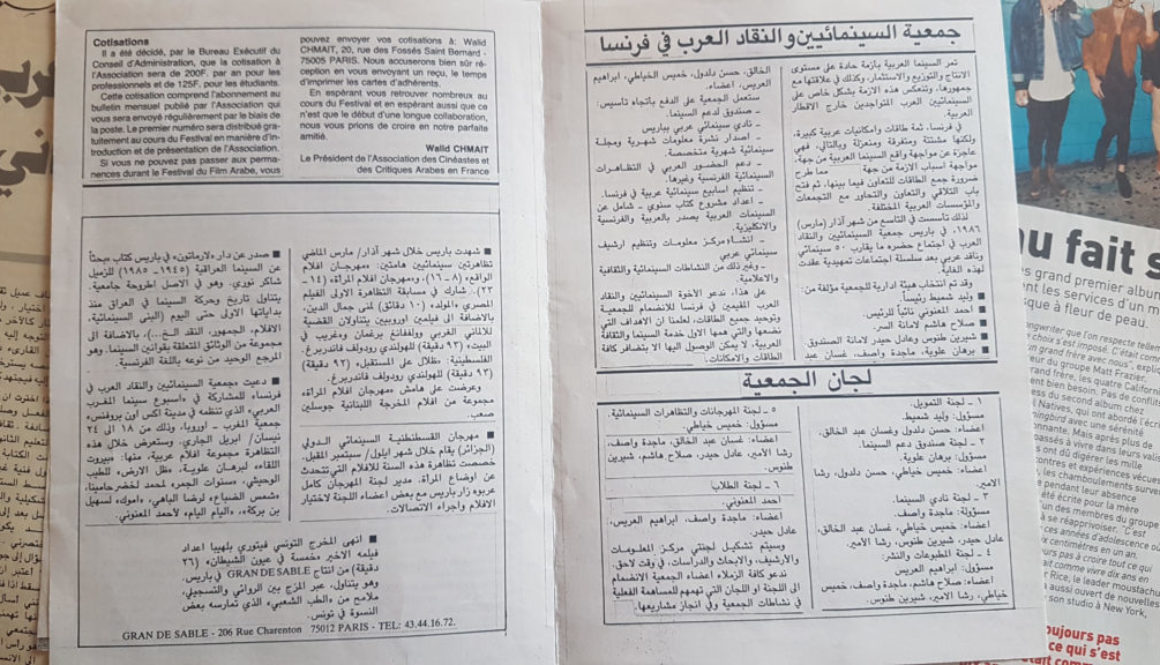 Cotisations
Il a été décidé, par le Bureau Exécutif du
Conseil d'Administration, que la cotisation à
l'Association sera de 200F. par an pour les
professionnels et de 125F. pour les étudiants.
Cette cotisation comprend l'abonnement au
bulletin mensuel publié par l'Association qui
vous sera envoyé régulièrement par le biais de
la poste. Le premier numéro sera distribué gra-
tuitement au cours du Festival en manière d'in-
troduction et de présentation de l'Association.
Si vous ne pouvez pas passer aux perma-
nences durant le Festival du Film Arabe, vous
pouvez envoyer vos cotisations à: Walid
CHMAIT, 20, rue des Fossés Saint Bernard -
75005 PARIS. Nous accuserons bien sûr ré-
ception en vous envoyant un reçu, le temps
d'imprimer les cartes d'adhérents.
En espérant vous retrouver nombreux au
cours du Festival et en espérant aussi que ce
n'est que le début d'une longue collaboration,
nous vous prions de croire en notre parfaite
amitié.
Walid CHMAIT
Le Président de l'Association des Cinéastes et
des Critiques Arabes en France
جمعية السينمائيين والنقاد العرب في فرنسا
تمر السينما العربية بأزمة حادة على مستوى
الانتاج والتوزيع والاستثمار، وكذلك في علاقتها مع
جمهورها، وتنعكس هذه الازمة بشكل خاص على
السينمائيين العرب المتواجدين خارج الاقطار
العربية.
في فرنسا، ثمة طاقات وامكانيات عربية كبيرة،
ولكنها مشتتة ومتفرقة ومنعزلة وبالتالي، فهي
عاجزة عن مواجهة واقع السينما العربية من جهة،
مواجهة اسباب الازمة من جهة مما طرح
ضرورة جمع الطاقات للتعاون فيما بينها، ثم فتح
باب التلاقي والتعاون والتحاور مع التجمعات
والمؤسسات العربية المختلفة.
لذلك تأسست في التاسع من شهر آذار (مارس)
١٩٨٦، في باريس جمعية السينمائيين والنقاد
العرب في اجتماع حضره ما يقارب ٥٠ سينمائي
وناقد عربي بعد سلسلة اجتماعات تمهيدية عقدت
لهذه الغاية.
وقد تم انتخاب هيئة ادارية للجمعية مؤلفة من:
■ وليد شميط رئيساً.
■ احمد المعنوني نائباً للرئيس.
■ صلاح هاشم لامانة السر.
■ شيرين طنوس وعادل حيدر لامانة الصندوق.
■ برهان علوية، ماجدة واصف، غسان عبد
الخالق، حسن دلدول، خميس الخياطي، ابراهيم
العريس، اعضاء.
ستعمل الجمعية على الدفع باتجاه تأسيس:
ـ صندوق لدعم السينما.
ـ نادي سينمائي عربي بباريس
ـ اصدار نشرة معلومات شهرية ومجلة
سينمائية شهرية متخصصة.
ـ دعم الحضور العربي في التظاهرات
السينمائية الفرنسية وغيرها.
ـ تنظيم اسابيع سينمائية عربية في فرنسا.
ـ اعداد مشروع كتاب سنوي ـ شامل عن
السينمات العربية يصدر بالعربية والفرنسية
والانكليزية.
ـ انشاء مركز معلومات وتنظيم ارشيف
سينمائي عربي
ـ وغير ذلك من النشاطات السينمائية والثقافية
والاعلامية.
على هذا، ندعو الأخوة السينمائيين والنقاد
العرب المقيمين في فرنسا للانضمام للجمعية
وتوحيد جميع الطاقات، لعلمنا ان الاهداف التي
نضعها والتي همها الاول خدمة السينما والثقافة
العربية، لا يمكن الوصول اليها الا بتضافر كافة
الطاقات والامكانات.
لجان الجمعية
١ ـ لجنة التمويل.
مسؤول: وليد شميط.
اعضاء: حسن دلدول وغسان عبد الخالق.
٢ ـ لجنة صندوق دعم السينما.
مسؤول: برهان علوية.
اعضاء: خميس خياطي، حسن دلدول، رشا
الامير.
٣ ـ لجنة نادي السينما.
مسؤولة: ماجدة واصف.
اعضاء: خميس خياطي، غسان عبد الخالق،
عادل حيدر، شيرين طنوس، رشا الأمير.
٤ ـ لجنة المطبوعات والنشر:
مسؤول: ابراهيم العريس
اعضاء: صلاح هاشم، ماجدة واصف، خميس
خياطي، رشا الامير، شيرين طنوس.
٥ ـ لجنة المهرجانات والتظاهرات السينمائية.
مسؤول: خميس خياطي.
اعضاء: غسان عبد الخالق، ماجدة واصف،
رشا الأمير، عادل حيدر، صلاح هاشم، شيرين
طنوس.
٦ ـ لجنة الطلاب
احمد المعنوني.
اعضاء: ماجدة واصف، ابراهيم العريس،
عادل حيدر.
وسيتم تشكيل لجنتي مركز المعلومات
والأرشيف، والابحاث والدراسات، في وقت لاحق.
ندعو كافة الزملاء اعضاء الجمعية الانضمام
الى اللجنة او اللجان التي تهمهم للمساهمة الفعلية
في نشاطات الجمعية وفي انجاز مشاريعها.
■ شهدت باريس خلال شهر آذار/ مارس الماضي
تظاهرتين سينمائيين هامتين: «مهرجان افلام
الواقع» (٨ - ١٦)، و«مهرجان افلام المرأة» (١٤ ـ
٢٣). شارك في مسابقة التظاهرة الاولى الفيلم
المصري «المولد» (١٠ دقائق) لمنى جمال الدين،
بالاضافة الى فيلمين اوروبيين يتناولان القضية
الفلسطينية: «ظلال على المستقبل» (٩٣ دقيقة)
للالماني الغربي وولفغانغ برغمان و«غريب في
البيت» (٩٣ دقيقة) للهولندي رودولف فاندربرغ.
وعرضت على هامش «مهرجان افلام المرأة»
مجموعة من افلام المخرجة اللبنانية جوسلين
صعب.
■ مهرجان القسطنطينية السينمائي الدولي
(الجزائر) يقام خلال شهر ايلول/ سبتمبر المقبل.
خصصت تظاهرة هذه السنة للافلام التي تتحدث
عن اوضاع المرأة. مدير لجنة المهرجان كامل
عربوه زار باريس مع بعض اعضاء اللجنة لاختيار
الافلام واجراء الاتصالات.
■ صدر عن دار «لارماتون» في باريس كتاب «بحثاً
عن السينما العراقية (١٩٤٥- ١٩٨٥) للزميل
شاكر نوري. وهو في الاصل اطروحة جامعية.
يتناول تاريخ وحركة السينما في العراق منذ
بداياتها الاولى حتى اليوم (البنى السينمائية،
الافلام، الجمهور، النقد الخ...)، بالاضافة الى
مجموعة من الوثائق المتعلقة بقوانين السينما. وهو
المرجع الوحيد من نوعه باللغة الفرنسية.
■ دعيت «جمعية السينمائيين والنقاد العرب في
فرنسا» للمشاركة في «اسبوع سينما المغرب
العربي» الذي تنظمه في مدينة اكس اون بروفنس»
جمعية المغرب ـ اوروبا، وذلك من ١٨ الى ٢٤
نيسان/ ابريل الجاري. وستعرض خلال هذه
التظاهرة مجموعة افلام عربية، منها: «بيروت
اللقاء» لبرهان علوية، «ظل الارض» للطيب
الوحيشي، «سنوات الجمر» لمحمد لخضر حامينا،
«شمس الضباع» لرضا الباهي، «اموك» لسهيل
بن بركة»، «اليام اليام» لأحمد المعنوني.
■ انهى المخرج التونسي فيتوري بلهيبا اعداد
فيلمه الاخير «خمسة في عيون الشيطان» (٢٦
دقيقة) من انتاج GRAN DE SABLE في باريس.
وهو يتناول، عبر المزج بين الروائي والتسجيلي،
ملامح من «الطب الشعبي» الذي تمارسه بعض
النسوة في تونس.
GRAN DE SABLE - 206 Rue Charenton 75012 PARIS - TEL: 43.44.16.72.
au fait s
grand premier album
ent les services d'un m
sque à fleur de peau.
ngwriter que l'on respecte
choix s'est imposé. C'était comm
un grand frère avec nous", expli
eur du groupe Matt Frazier.
rand frère, les quatre Californi
ent bien besoin. Pas de conflits
ess du second album chez
Natives, qui ont abordé l'écri
ngbird avec une sérénité
onnante. Mais après plus de
passés à vivre dans leurs valis
s ont dû digérer les mille
contres et expériences vécues
les chamboulements surven
pendant leur absence
été écrite pour la mère
un des membres du groupe
à se réapprivoiser. "C'est
ces années d'adolescence où
x centimètres en un an.
urs pas à croire tout ce qui
ait comme vivre dix ans en
r Rice, le leader moustachu
aussi ouvert de nouvelles
son studio à New York,
oujours pas
ce qui s'est